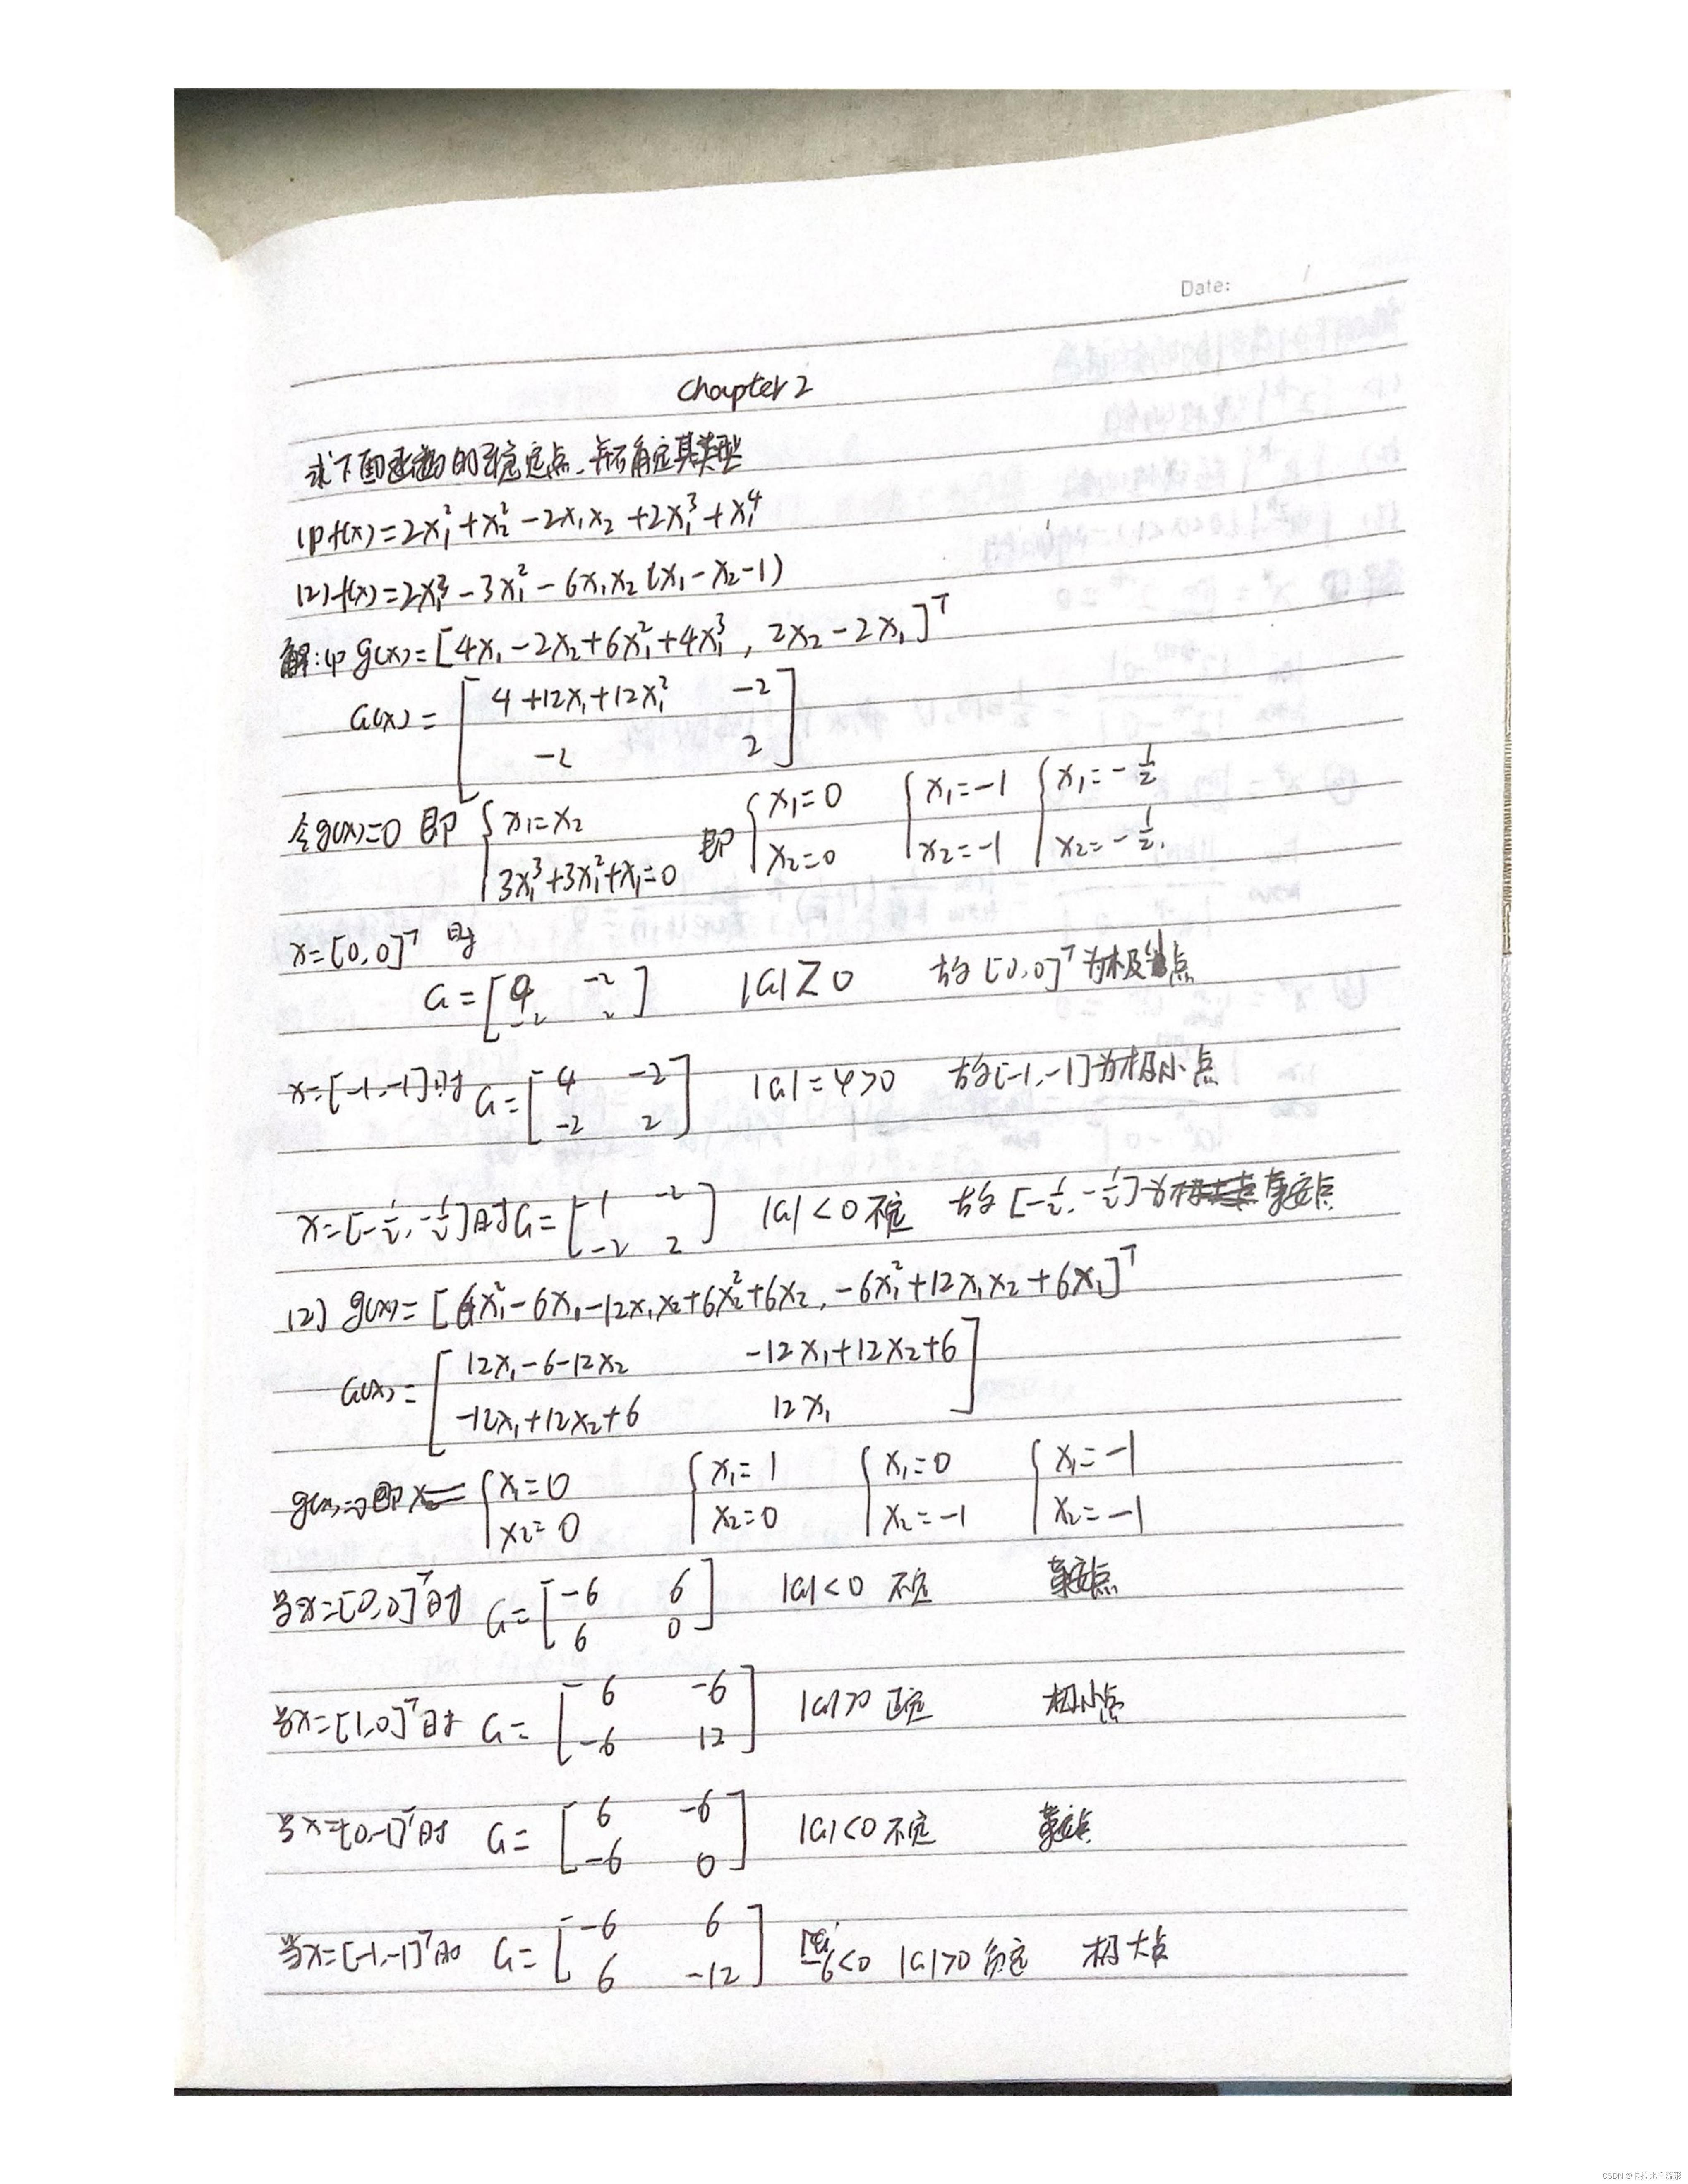 Date:
Chapter 2
求下面函数的稳定点,并确定其类型
(1) f(x)=2x₁²+x₂²-2x₁x₂+2x₁³+x₁⁴
(2) f(x)=2x₁³-3x₁²-6x₁x₂(x₁-x₂-1)
解:(1) g(x)=[4x₁-2x₂+6x₁²+4x₁³, 2x₂-2x₁]ᵀ
G(x)=[4+12x₁+12x₁² -2
-2 2]
令g(x)=0 即 {x₁=x₂ 即 {x₁=0 {x₁=-1 {x₁=-1/2
3x₁³+3x₁²+x₁=0 x₂=0 x₂=-1 x₂=-1/2.
x=[0,0]ᵀ 时
G=[4 -2 |G|>0 故[0,0]ᵀ为极小点
-2 2]
x=[-1,-1]时 G=[4 -2 |G|=4>0 故[-1,-1]为极小点
-2 2]
x=[-1/2,-1/2]时G=[1 -2 |G|<0 不定 故[-1/2,-1/2]为鞍点
-2 2]
(2) g(x)=[6x₁²-6x₁-12x₁x₂+6x₂²+6x₂, -6x₁²+12x₁x₂+6x₁]ᵀ
G(x)=[12x₁-6-12x₂ -12x₁+12x₂+6
-12x₁+12x₂+6 12x₁]
g(x)=0即 {x₁=0 {x₁=1 {x₁=0 {x₁=-1
x₂=0 x₂=0 x₂=-1 x₂=-1
当x=[0,0]ᵀ时 G=[-6 6 |G|<0 不定 鞍点
6 0]
当x=[1,0]ᵀ时 G=[6 -6 |G|>0 正定 极小点
-6 12]
当x=[0,-1]ᵀ时 G=[6 -6 |G|<0 不定 鞍点
-6 0]
当x=[-1,-1]ᵀ时 G=[-6 6 -6<0 |G|>0 负定 极大点
6 -12]
CSDN @卡拉比丘流形